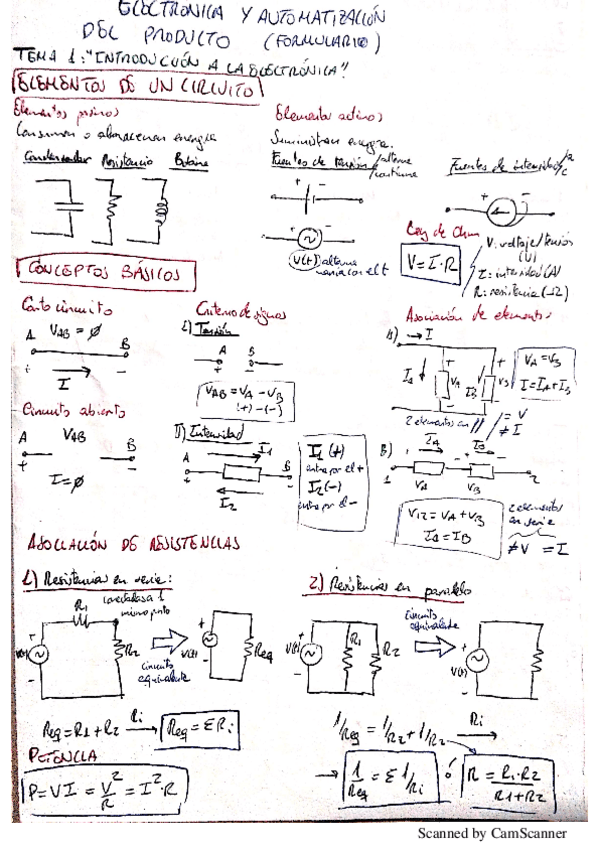 ELECTRONICA Y AUTOMATIZACIÓN
DEL PRODUCTO (FORMULARIO)
TEMA 1: "INTRODUCCIÓN A LA ELECTRÓNICA".
ELEMENTOS DE UN CIRCUITO
Elementos pasivos
Consumen o almacenan energía
Condensador Resistencia Bobina
Elementos activos
Suministran energía.
Fuentes de tensión / alterna
continua
Fuentes de intensidad
+ -
+ -
V(t) alterna
varia con el t
+ -
Ley de Ohm
V = I·R
V: voltaje/tensión (V)
I: intensidad (A)
R: resistencia (Ω)
CONCEPTOS BÁSICOS
Corto circuito
VAB = ø
A B
+ I -
Circuito abierto
A VAB B
+ -
I = ø
Criterio de signos
I) Tensión
A B
+ -
VAB = VA - VB
(+) - (-)
II) Intensidad
I1
A B
+ -
I2
I1 (+)
entra por el +
I2 (-)
entra por el -
Asociación de elementos
A) → I
IA VA IB VB
VA = VB
I = IA + IB
2 elementos en //
= V
≠ I
B) IA IB
1 VA VB 2
V12 = VA + VB
IA = IB
2 elementos en serie
≠ V = I
ASOCIACIÓN DE RESISTENCIAS
1) Resistencias en serie:
conectadas a 1
mismo punto
R1
V(t) R2
circuito
equivalente
V(t) Req
Req = R1 + R2 Ri → Req = ΣRi
2) Resistencias en paralelo
V(t) R1 R2
circuito
equivalente
V(t)
1/Req = 1/R2 + 1/R2 Ri →
→ 1/Req = Σ 1/Ri ó R = R1·R2/R1+R2
POTENCIA
P = VI = V²/R = I²·R
Scanned by CamScanner